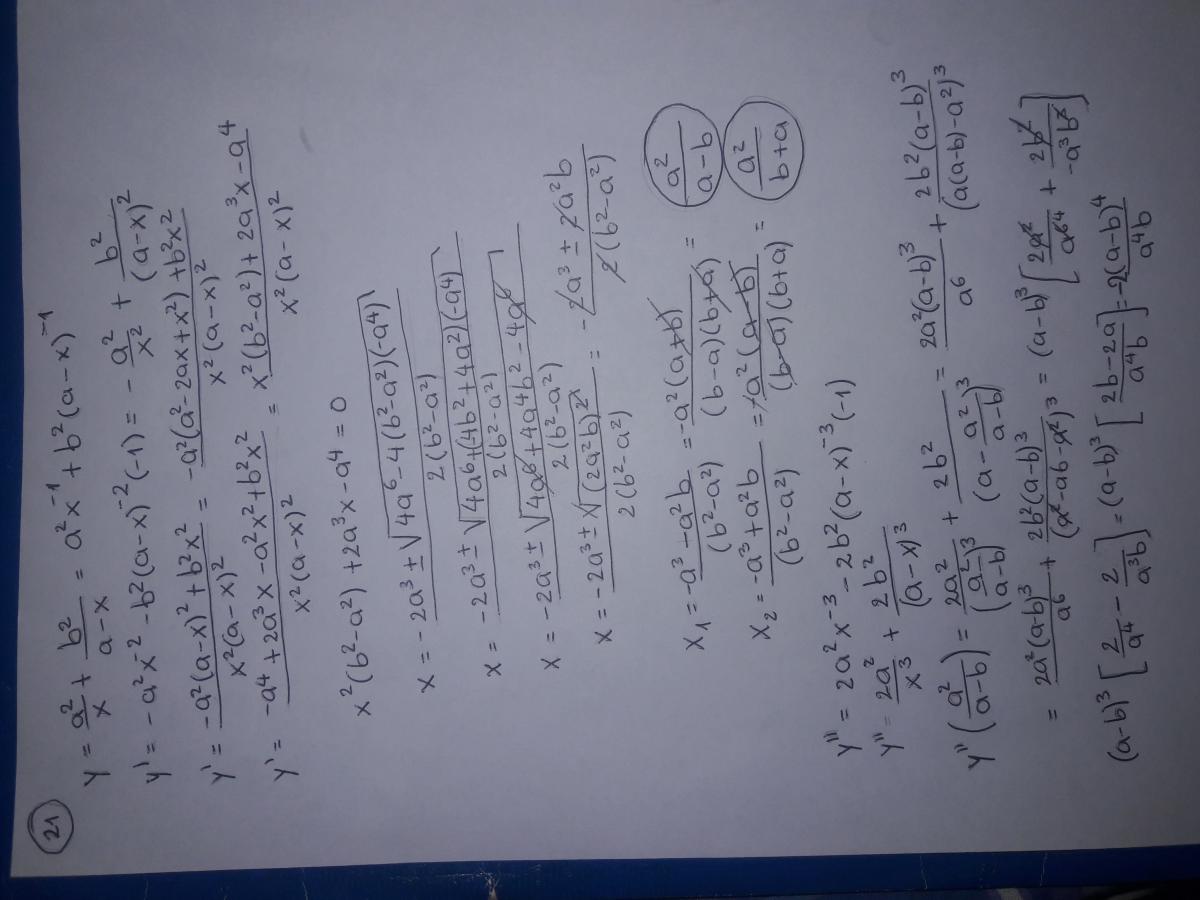 21
y = a²/x + b²/(a-x) = a²x⁻¹ + b²(a-x)⁻¹
y' = -a²x⁻² - b²(a-x)⁻²(-1) = -a²/x² + b²/(a-x)²
y' = (-a²(a-x)² + b²x²)/(x²(a-x)²) = (-a²(a²-2ax+x²)+b²x²)/(x²(a-x)²)
y' = (-a⁴+2a³x-a²x²+b²x²)/(x²(a-x)²) = (x²(b²-a²)+2a³x-a⁴)/(x²(a-x)²)
x²(b²-a²)+2a³x-a⁴=0
x = (-2a³ ± √(4a⁶-4(b²-a²)(-a⁴)))/(2(b²-a²))
x = (-2a³ ± √(4a⁶+(4b²+4a²)(-a⁴)))/(2(b²-a²))
x = (-2a³ ± √(4a⁶+4a⁴b²-4a⁶))/(2(b²-a²))
x = (-2a³ ± √((2a²b)²))/(2(b²-a²)) = (-2a³ ± 2a²b)/(2(b²-a²))
x₁ = (-a³-a²b)/(b²-a²) = (-a²(a+b))/((b-a)(b+a)) = a²/(a-b)
x₂ = (-a³+a²b)/(b²-a²) = (-a²(a-b))/((b-a)(b+a)) = a²/(b+a)
y'' = 2a²x⁻³ - 2b²(a-x)⁻³(-1)
y'' = 2a²/x³ + 2b²/(a-x)³
y''(a²/(a-b)) = 2a²/(a²/(a-b))³ + 2b²/(a - a²/(a-b))³ = 2a²(a-b)³/a⁶ + 2b²(a-b)³/(a(a-b)-a²)³
= 2a²(a-b)³/a⁶ + 2b²(a-b)³/(a²-ab-a²)³ = (a-b)³[2a²/a⁶⁴ + 2b²/-a³b³]
(a-b)³[2/a⁴ - 2/a³b] = (a-b)³[(2b-2a)/a⁴b] = -2(a-b)⁴/a⁴b